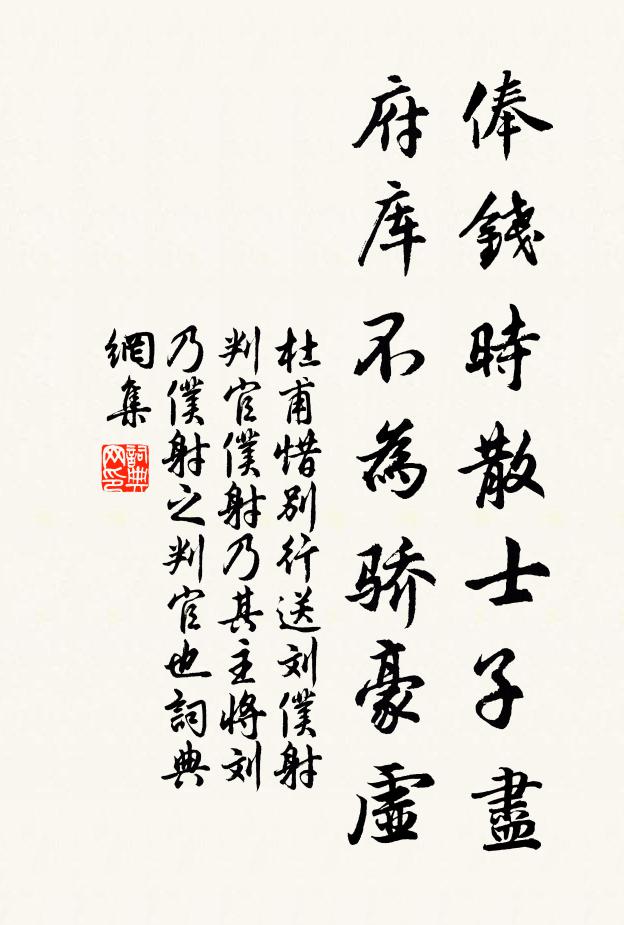 俸錢時散士子盡
府库不為骄豪虛
杜甫惜别行送刘僕射
判官僕射乃其主將刘
乃僕射之判官也詞典
網集
詞典
网印